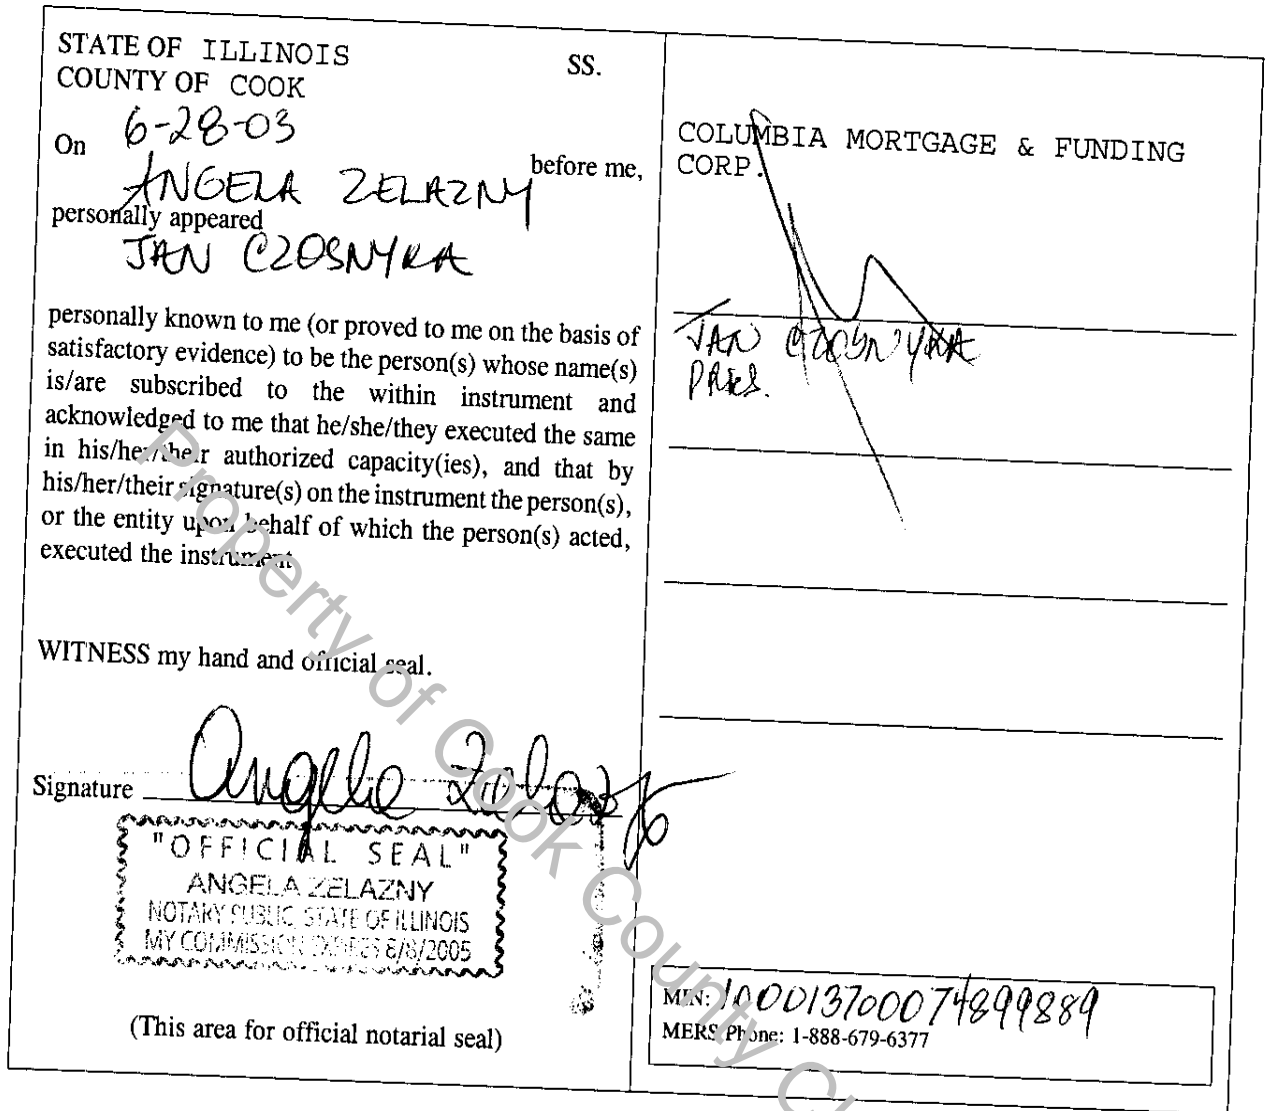 STATE OF ILLINOIS SS.
COUNTY OF COOK
On 6-28-03
ANGELA ZELAZNY before me,
personally appeared
JAN CZOSNYKA
personally known to me (or proved to me on the basis of
satisfactory evidence) to be the person(s) whose name(s)
is/are subscribed to the within instrument and
acknowledged to me that he/she/they executed the same
in his/her/their authorized capacity(ies), and that by
his/her/their signature(s) on the instrument the person(s),
or the entity upon behalf of which the person(s) acted,
executed the instrument
WITNESS my hand and official seal.
Signature Angela Zelazny
"OFFICIAL SEAL"
ANGELA ZELAZNY
NOTARY PUBLIC STATE OF ILLINOIS
MY COMMISSION EXPIRES 8/8/2005
(This area for official notarial seal)
COLUMBIA MORTGAGE & FUNDING
CORP.
JAN CZOSNYKA
PRES.
MIN: 100013700074899889
MERS Phone: 1-888-679-6377
Property of Cook County